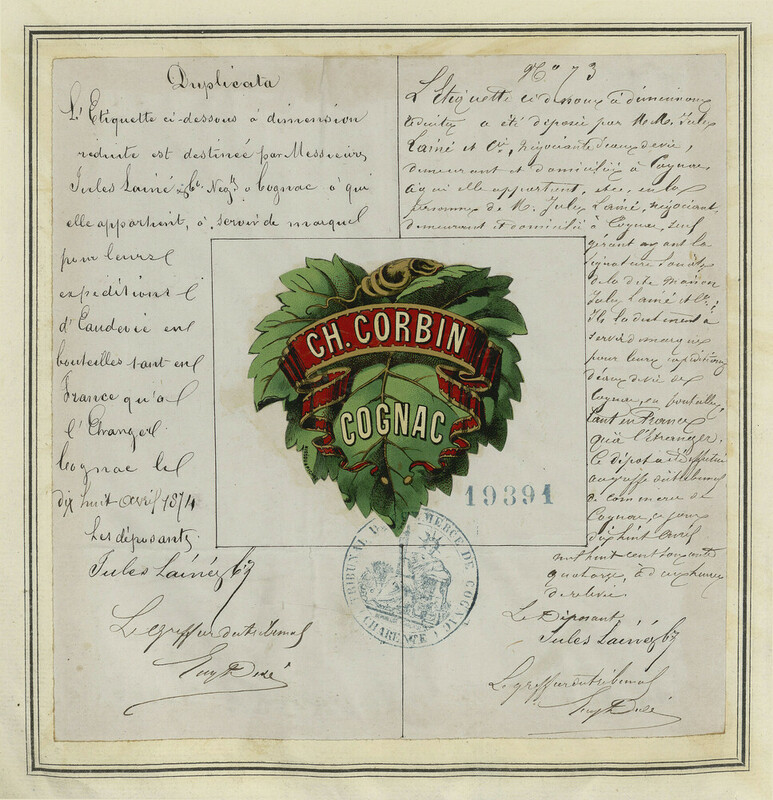 Duplicata
L'Etiquette ci-dessous à dimension
reduite est destinée par Messieurs
Jules Lainé & Cie. Negts. à Cognac à qui
elle appartient, à servir de marque
pour leurs
expeditions
d'Eaudevie en
bouteilles tant en
France qu'à
l'Etranger
Cognac le
dix huit avril 1874
Les déposants
Jules Lainé & Cie
Le greffier du tribunal
No 73
L'Etiquette ci-dessous à dimensions
réduites a été déposée par M.M. Jules
Lainé et Cie, négociants d'eaux devie,
demeurant et domiciliés à Cognac,
à qui elle appartient, etc, en la
personne de M. Jules Lainé, négociant,
demeurant et domicilié à Cognac, seul
gérant ayant la
signature sociale
de la dite maison
Jules Lainé et Cie.
Ils la destinent à
servir de marque
pour leurs expéditions
d'eaux devie de
Cognac, en bouteilles,
tant en France
qu'à l'étranger.
Le dépôt a été effectué
au greffe du tribunal
de commerce de
Cognac, ce jour
dix huit avril
mil huit cent soixante
quatorze, à deux heures
de relevée.
Le Déposant
Jules Lainé & Cie
Le greffier du tribunal
CH. CORBIN
COGNAC
19391
TRIBUNAL DE COMMERCE DE COGNAC
CHARENTE